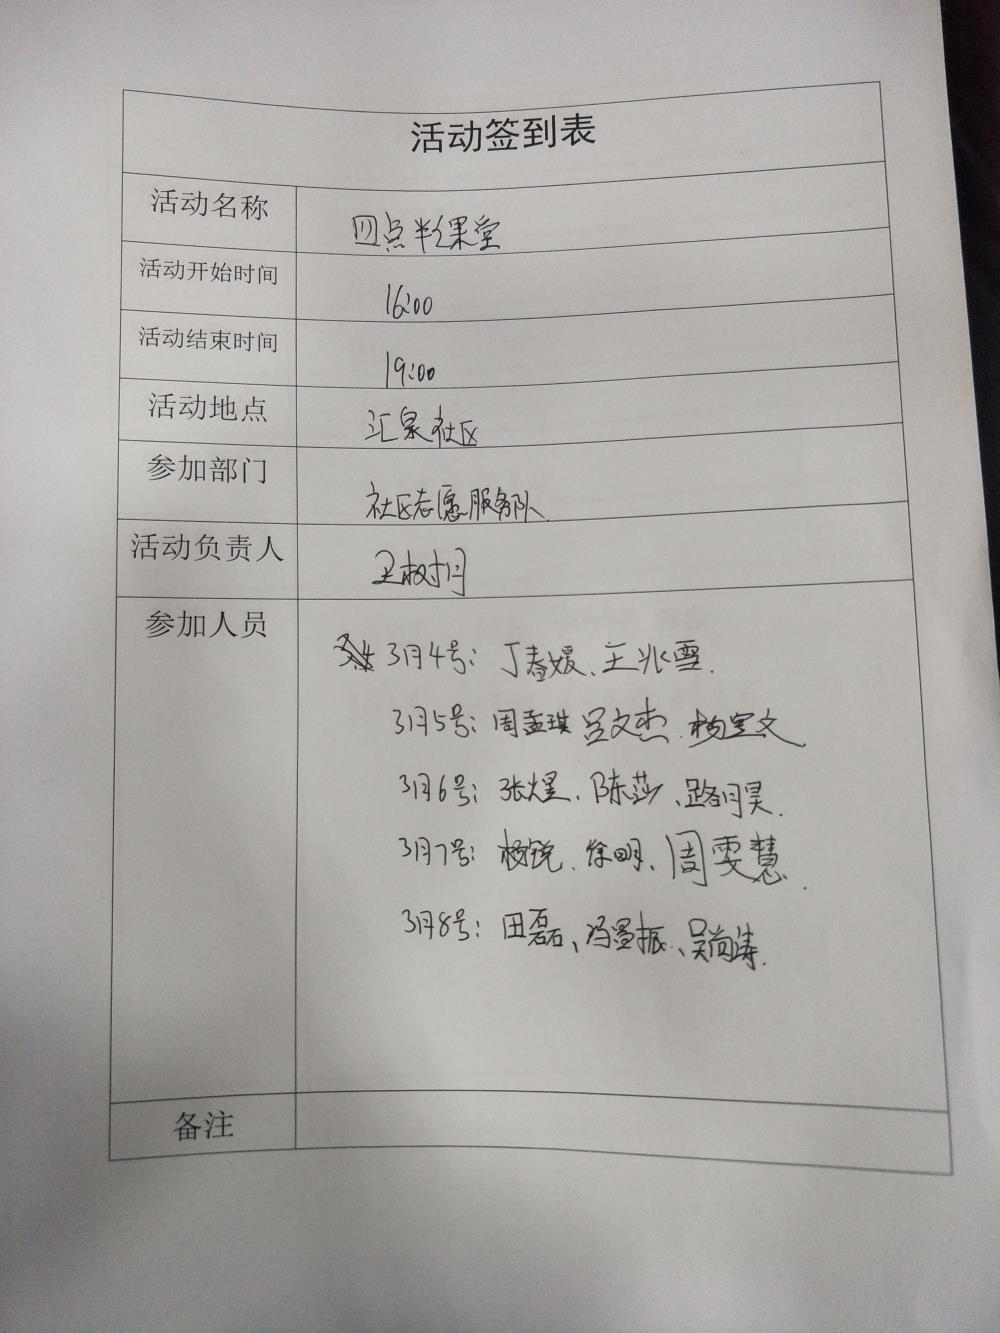 活动签到表
活动名称 四点半课堂
活动开始时间 16:00
活动结束时间 19:00
活动地点 汇泉社区
参加部门 社区志愿服务队
活动负责人 王树月
参加人员 3月4号：丁春媛、王兆雪.
3月5号：周孟琪 吕文杰、杨宝文
3月6号：张煜、陈莎、路月昊.
3月7号：杨锐、徐明、周雯慧.
3月8号：田磊、冯墨振、吴尚涛.
备注